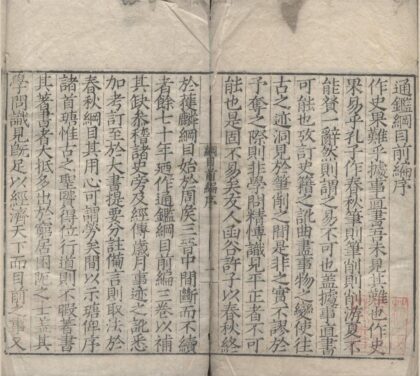 通鑑綱目前編序
作史果難乎據事直書吾未見其難也作史
果易乎孔子作春秋筆則筆削則削游夏不
能贊一辭矣則謂之易不可也蓋據事直書
可能也攷訂史籍之訛曲盡事物之變使往
古之迹洞見於筆削之間是非之實不謬於
予奪之際則非學問精博識見年正者不可
能也是固不易矣友人函谷許子以春秋終
綱目前編序
一
於獲麟綱目始於周庚三晉中間斷而不續
者餘七十年廼作通鑑綱目前編三卷以補
其缺參稽諸史旁及經傳歲月事迹之訛悉
加考訂至於大書提要分註備言則取法於
春秋綱目其用心可謂勞矣間以示璡俾序
諸首璡惟古之聖賢得位行道則不暇著書
其著書者大抵多出於窮居困阨之士蓋其
學問識見旣足以經濟天下而目前之事又